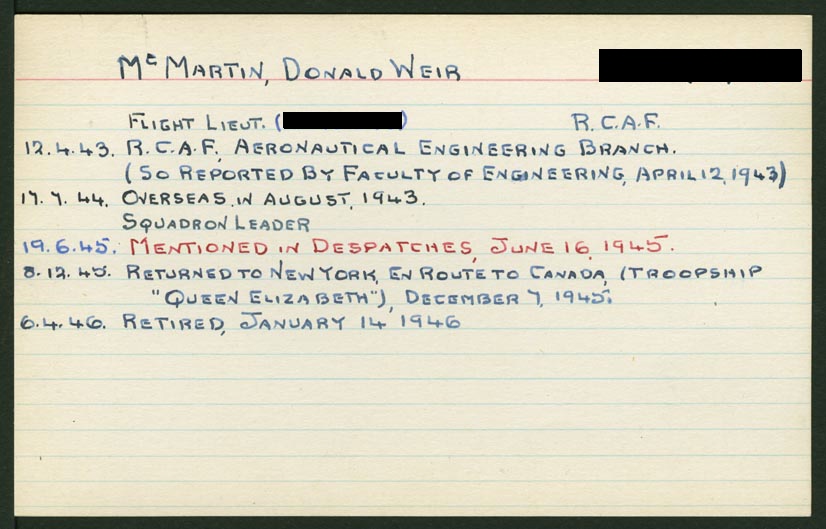 McMARTIN, DONALD WEIR
FLIGHT LIEUT. ( ) R.C.A.F.
12.4.43. R.C.A.F., AERONAUTICAL ENGINEERING BRANCH.
(SO REPORTED BY FACULTY OF ENGINEERING, APRIL 12, 1943)
17.7.44. OVERSEAS, IN AUGUST, 1943.
SQUADRON LEADER
19.6.45. MENTIONED IN DESPATCHES, JUNE 16, 1945.
8.12.45. RETURNED TO NEW YORK, EN ROUTE TO CANADA, (TROOPSHIP
"QUEEN ELIZABETH"), DECEMBER 7, 1945.
6.4.46. RETIRED, JANUARY 14 1946